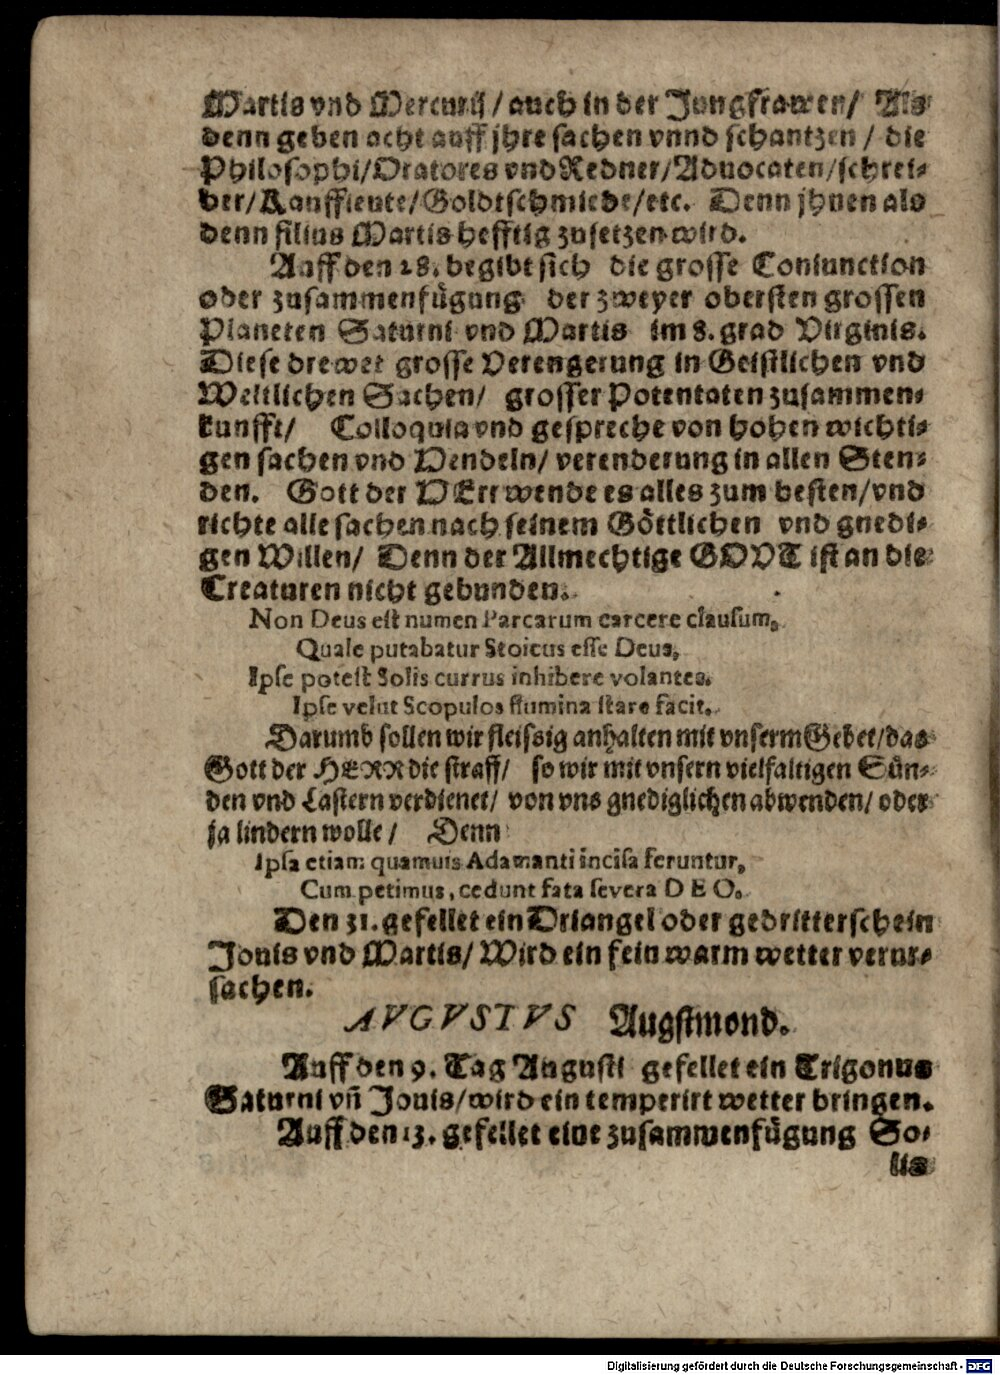 Martis vnd Mercurij / auch in der Jungfrawen / Als
denn geben acht auff jhre sachen vnnd schantzen / die
Philosophi/Oratores vnd Redner/Aduocaten/schrei-
ber/Kauffleute/Goldtschmiede/etc. Denn jhnen als
denn filius Martis hefftig zusetzen wird.
Auff den 28. begibt sich die grosse Coniunction
oder zusammenfügung der zweyer obersten grossen
Planeten Saturni vnd Martis im 8. grad Virginis.
Diese drewet grosse Verengerung in Geistlichen vnd
Weltlichen Sachen/ grosser Potentaten zusammen-
kunfft/ Colloquia vnd gespreche von hohen wichti-
gen sachen vnd Hendeln/ verenderung in allen Sten-
den. Gott der HErr wende es alles zum besten/vnd
richte alle sachen nach seinem Göttlichen vnd gnedi-
gen Willen/ Denn der Allmechtige GOTT ist an die
Creaturen nicht gebunden.
Non Deus est numen Parcarum carcere clausum,
Quale putabatur Stoicus esse Deus,
Ipse potest Solis currus inhibere volantes.
Ipse velut Scopulos flumina stare facit.
Darumb sollen wir fleissig anhalten mit vnserm Gebet/das
Gott der HERR die straff/ so wir mit vnsern vielfaltigen Sün-
den vnd Lastern verdienet/ von vns gnediglichen abwenden/ oder
ja lindern wolle/ Denn
Ipsa etiam quamuis Adamanti incisa feruntur,
Cum petimus, cedunt fata severa DEO.
Den 31. gefellet ein Driangel oder gedritterschein
Jouis vnd Martis/ Wird ein fein warm wetter verur-
sachen.
AVGVSTVS Augstmond.
Auff den 9. Tag Augusti gefellet ein Trigonus
Saturni vñ Jouis/wird ein temperirt wetter bringen.
Auff den 13. gefellet eine zusammenfügung So-
lis
Digitalisierung gefördert durch die Deutsche Forschungsgemeinschaft - DFG